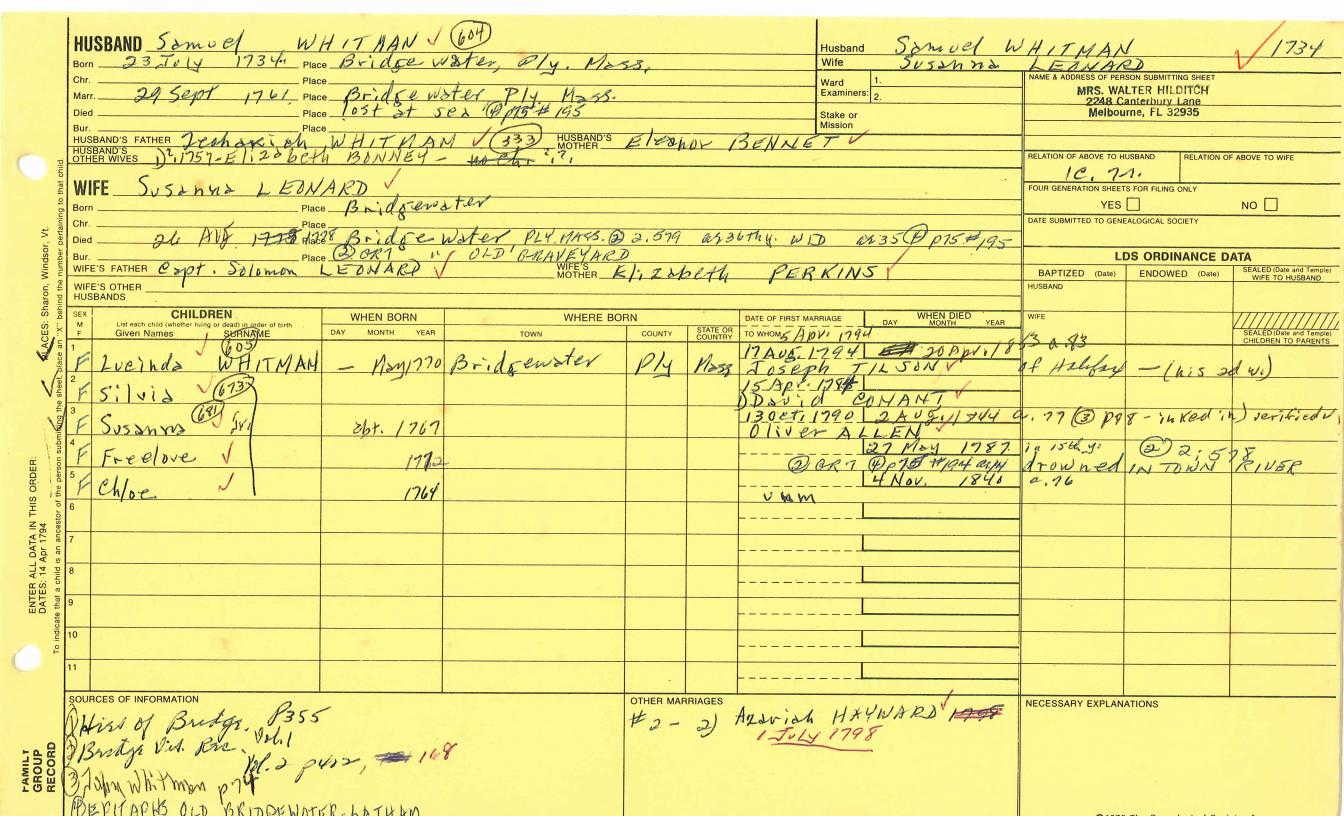 HUSBAND Samuel WHITMAN 604
Born 23 July 1734 Place Bridgewater, Ply. Mass.
Chr. Place
Marr. 29 Sept 1761 Place Bridgewater Ply Mass.
Died Place lost at sea (4) p75 # 195
Bur. Place
HUSBAND'S FATHER Zechariah WHITMAN 333 HUSBAND'S MOTHER Eleanor BENNET
HUSBAND'S OTHER WIVES 1) 1757-Elizabeth BONNEY - no Chr
Husband Samuel WHITMAN 1734
Wife Susanna LEONARD
Ward Examiners: 1.
2.
Stake or Mission
NAME & ADDRESS OF PERSON SUBMITTING SHEET
MRS. WALTER HILDITCH
2248 Canterbury Lane
Melbourne, FL 32935
RELATION OF ABOVE TO HUSBAND RELATION OF ABOVE TO WIFE
FOUR GENERATION SHEETS FOR FILING ONLY
YES NO
DATE SUBMITTED TO GENEALOGICAL SOCIETY
WIFE Susanna LEONARD
Born Place Bridgewater
Chr. Place
Died 26 Aug 1788 Place Bridgewater, PLY. MASS. (2) 2.579 WID (4) p75 #195
Bur. Place (2) GR7 " OLD GRAVEYARD
WIFE'S FATHER Capt. Solomon LEONARD WIFE'S MOTHER Elizabeth PERKINS
WIFE'S OTHER HUSBANDS
LDS ORDINANCE DATA
BAPTIZED (Date) ENDOWED (Date) SEALED (Date and Temple) WIFE TO HUSBAND
HUSBAND
WIFE
SEALED (Date and Temple) CHILDREN TO PARENTS
SEX M F
CHILDREN
List each child (whether living or dead) in order of birth
Given Names SURNAME
WHEN BORN
DAY MONTH YEAR
WHERE BORN
TOWN COUNTY STATE OR COUNTRY
DATE OF FIRST MARRIAGE
TO WHOM
WHEN DIED
DAY MONTH YEAR
5 Apr. 1794
1 F Lucinda WHITMAN 605 - May 1770 Bridgewater Ply Mass 17 Aug. 1794 20 Apr. a. 83
Joseph TILSON of Halifax - (his 2d w.)
2 F Silvia 673 15 Apr.
1) David CONANT
3 F Susanna 681 abt. 1767 13 Oct. 1790 2 Aug 1844 a. 77 (3) p98 - inked in) verified
Oliver ALLEN
4 F Freelove 1772 27 May 1787 in 15th y: (2) 2.578
(2) GR7 (4) p75 #194 drowned IN TOWN RIVER
5 F Chloe 1764 4 Nov. 1840 a. 76
unm
6
7
8
9
10
11
SOURCES OF INFORMATION
(1) Hiss of Bridge. P355
(2) Bridge Vit. Rec. Vol.1
Vol. 2 p422, 168
(3) John Whitman p 74
(4) EPITAPHS OLD BRIDGEWATER-LATHAM
OTHER MARRIAGES
#2 - 2) Azariah HAYWARD 1798
1 July 1798
NECESSARY EXPLANATIONS
ENTER ALL DATA IN THIS ORDER:
DATES: 14 Apr 1794
PLACES: Sharon, Windsor, Vt.
To indicate that a child is an ancestor of the person submitting the sheet, place an "X" behind the number pertaining to that child.
FAMILY GROUP RECORD